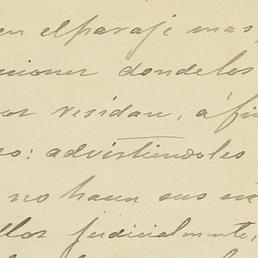 en el paraje mas
ciones donde los
or residan, á fin
o: advirtiendoles
no hacen sus
llos judicialmente,